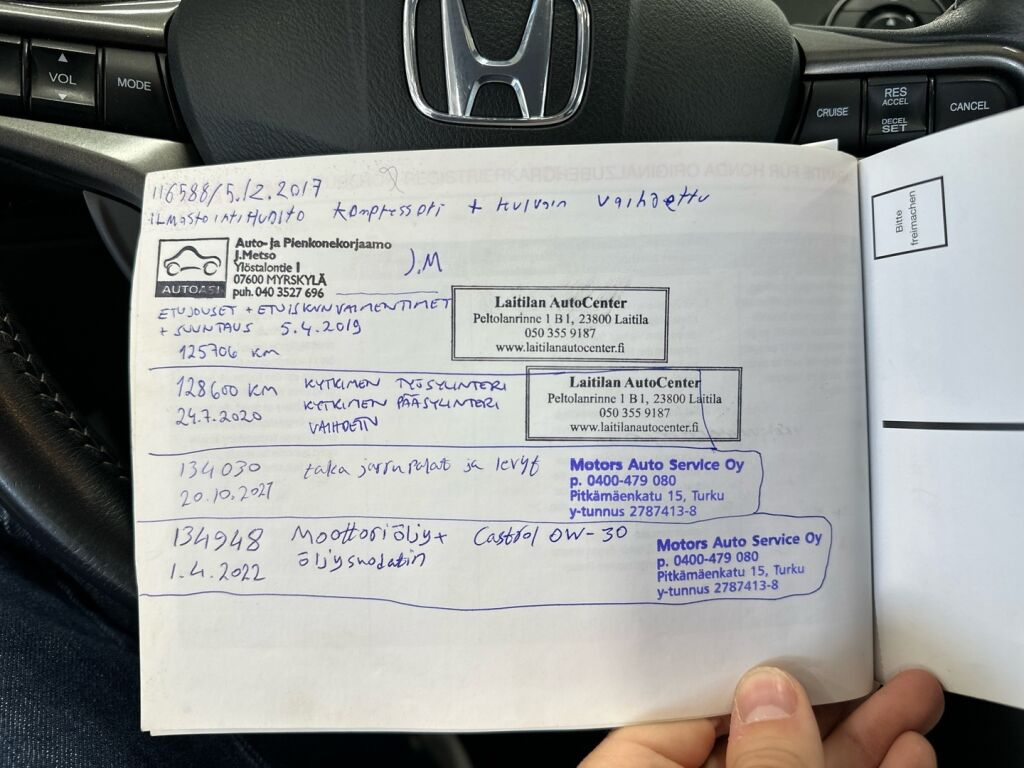 VOL
MODE
CRUISE
RES
ACCEL
DECEL
SET
CANCEL
116588/5.12.2017
ILMASTOINTIHUOLTO kompressori + kuivain vaihdettu
Auto- ja Pienkonekorjaamo
J.Metso
Ylöstalontie 1
07600 MYRSKYLÄ
puh. 040 3527 696
AUTOASI
J.M
ETUJOUSET + ETUISKUNVAIMENTIMET
+ SUUNTAUS 5.4.2019
125706 KM
Laitilan AutoCenter
Peltolanrinne 1 B 1, 23800 Laitila
050 355 9187
www.laitilanautocenter.fi
128600 KM KYTKIMEN TYÖSYLINTERI
24.7.2020 KYTKIMEN PÄÄSYLINTERI
VAIHDETTU
Laitilan AutoCenter
Peltolanrinne 1 B 1, 23800 Laitila
050 355 9187
www.laitilanautocenter.fi
134030 taka jarrupalat ja levyt
20.10.2021
Motors Auto Service Oy
p. 0400-479 080
Pitkämäenkatu 15, Turku
y-tunnus 2787413-8
134948 Moottoriöljy + Castrol 0W-30
1.4.2022 öljysuodatin
Motors Auto Service Oy
p. 0400-479 080
Pitkämäenkatu 15, Turku
y-tunnus 2787413-8
Bitte
freimachen